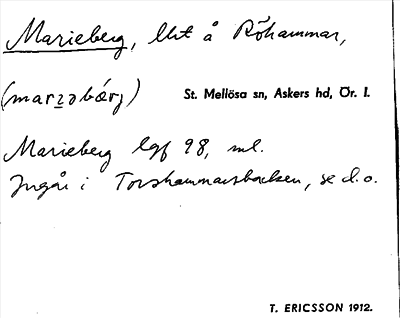 Marieberg, lht å Röhammar,
(marzəbærj) St. Mellösa sn, Askers hd, Ör. l.
Marieberg lgf 98, ml.
Ingår i Torshammarsbacken, se d.o.
T. ERICSSON 1912.